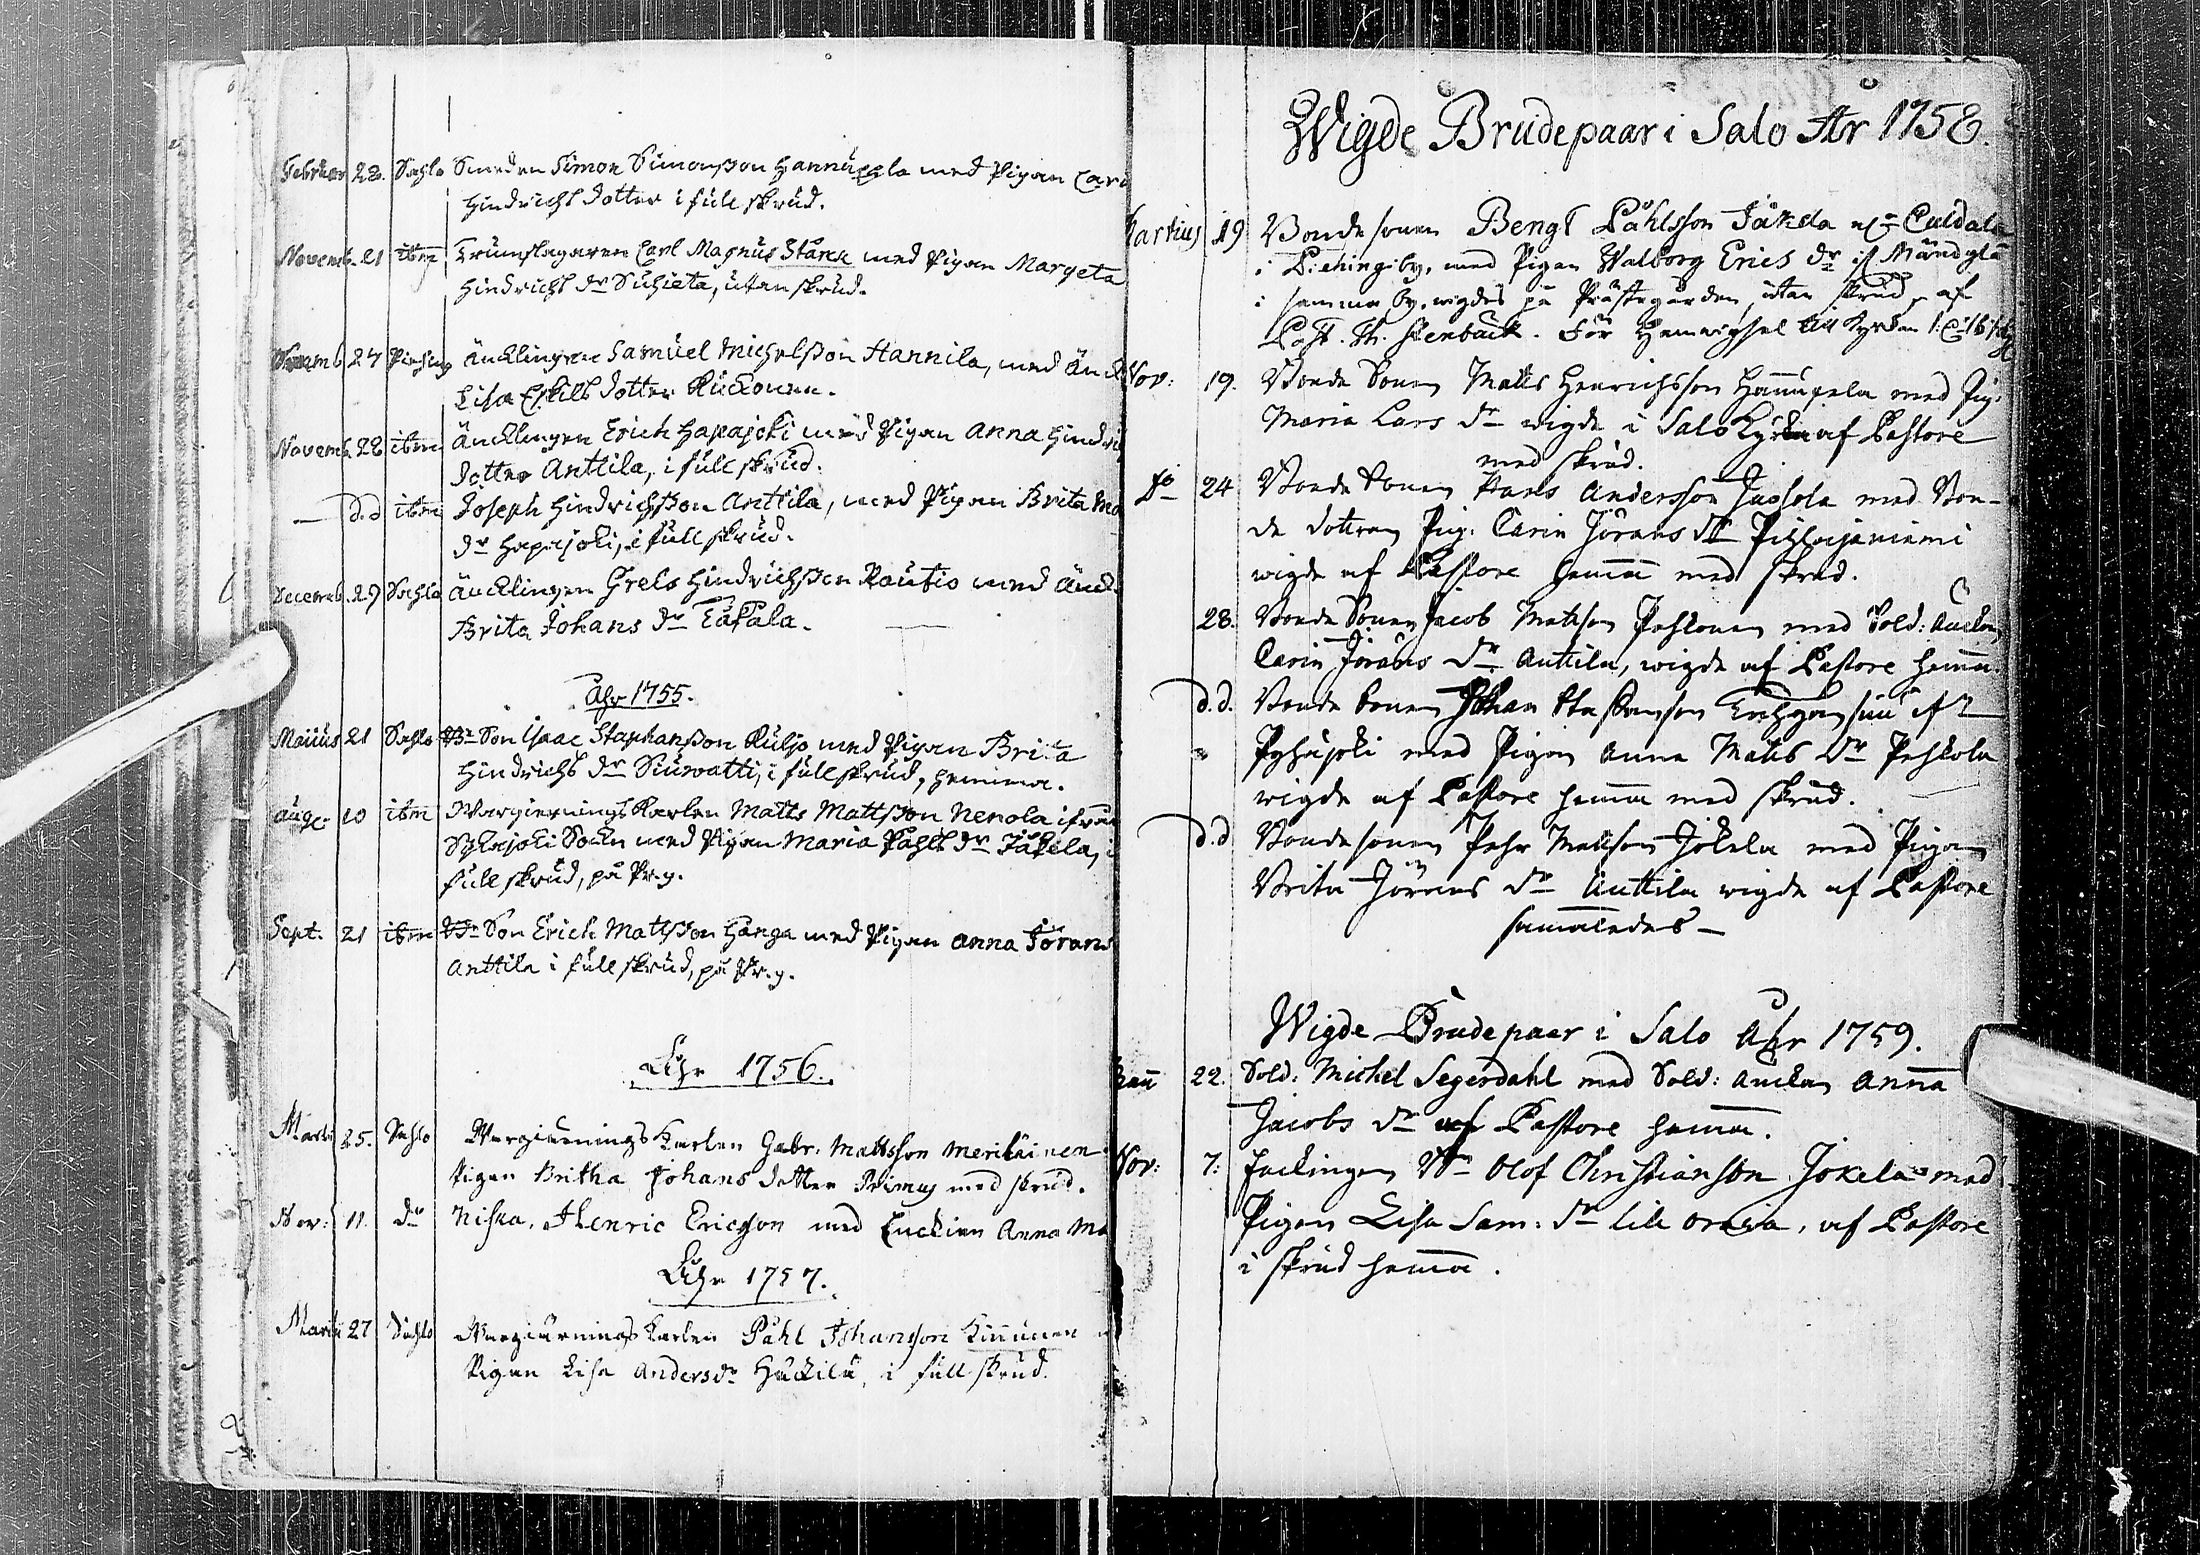 Februar 28. Sahlo Smeden Simon Simonsson Hannuxela med Pigan Car
Hindrichs dotter i full skrud.
Novemb. 21 ibm Trumslagaren Carl Magnus Starck med Pigan Margeta
Hindrichs dr Suhieta, utan skrud.
24 änklingen Samuel Michelsson Hannila, med
Lisa Eskils dotter
Novemb. 28 ibm änklingen Erich Hapajoki med Pigan Anna Hindri
dotter Anttila, i full skrud.
— d.d ibm Joseph Hindrichsson Anttila, med Pigan Brita Ma
dr Hapajoki, i full skrud.
Decemb. 29 Sahlo änklingen Grels Hindrichsson Rautio med Änk
Brita Johans dr Täkala.
Ahr 1755.
Maius 21 Sahlo Bde Son Isaac Staphansson Kuljo med Pigan Brita
Hindrichs dr Siuwatti, i full skrud, hemma.
aug. 10 ibm Wargierings Karlen Matts Mattsson Nenola ifrån
Sikajoki Sockn med Pigan Maria Påhls dr Jäkela, i
full skrud, på Pr.g.
Sept. 21 ibm Bde Son Erich Mattsson Hanga med Pigan Anna Jörans
Anttila i full skrud, på Pr.g.
Ahr 1756.
Marti 25. Sahlo Wargierings Karlen Gabr. Mattsson Meriläinen
Pigan Britha Johans dotter Primus med skrud.
Nov: 11. do Niska, Henric Ericsson med Enckian Anna Ma
Ahr 1757.
Martii 27 Sahlo Wargierings Karlen Påhl Johansson Kinnunen
Pigan Lisa Andersdr Häckilä, i full skrud.
Wigde Brudepaar i Salo Åhr 1758.
Martius 19 Bonde sonen Bengt Påhlsson Jäkela
i Piehingi by, med Pigan Walborg Erics dr
i samma by, wigdes på Prästegården, utan skrud, af
Past. H. Stenbäck. För Hemwigsel till Kyrkan
Nov: 19. Bonde Sonen Matts Henrichsson Hannuxela med Pig:
Maria Lars dr wigde i Salo Kyrka af Pastore
med skrud.
do 24 Bonde Sonen Hans Andersson Jussola med Bon-
de dottren Pig: Carin Jörans dr Pihlajaniemi
wigde af Pastore hemma med skrud.
28. Bonde Sonen Jacob Mattson Pehkonen med Sold: Änckan
Carin Jörans dr Anttila, wigde af Pastore hemma.
d.d. Bonde Sonen Johan Staffansson
Pyhäjoki med Pigan Anna Matts dr Pehkola
wigde af Pastore hemma med skrud.
d.d Bonde sonen Pehr Mattson Jokela med Pigan
Brita Jörans dr Anttila wigde af Pastore
sammaledes —
Wigde Brudepaar i Salo Ahr 1759.
22. Sold: Michel Segerdahl med Sold: änckan Anna
Jacobs dr af Pastore hemma.
Nov: 7: Enckingen Bn Olof Christianson Jokela med
Pigan Lisa Sam: dr lill , af Pastore
i skrud hemma.